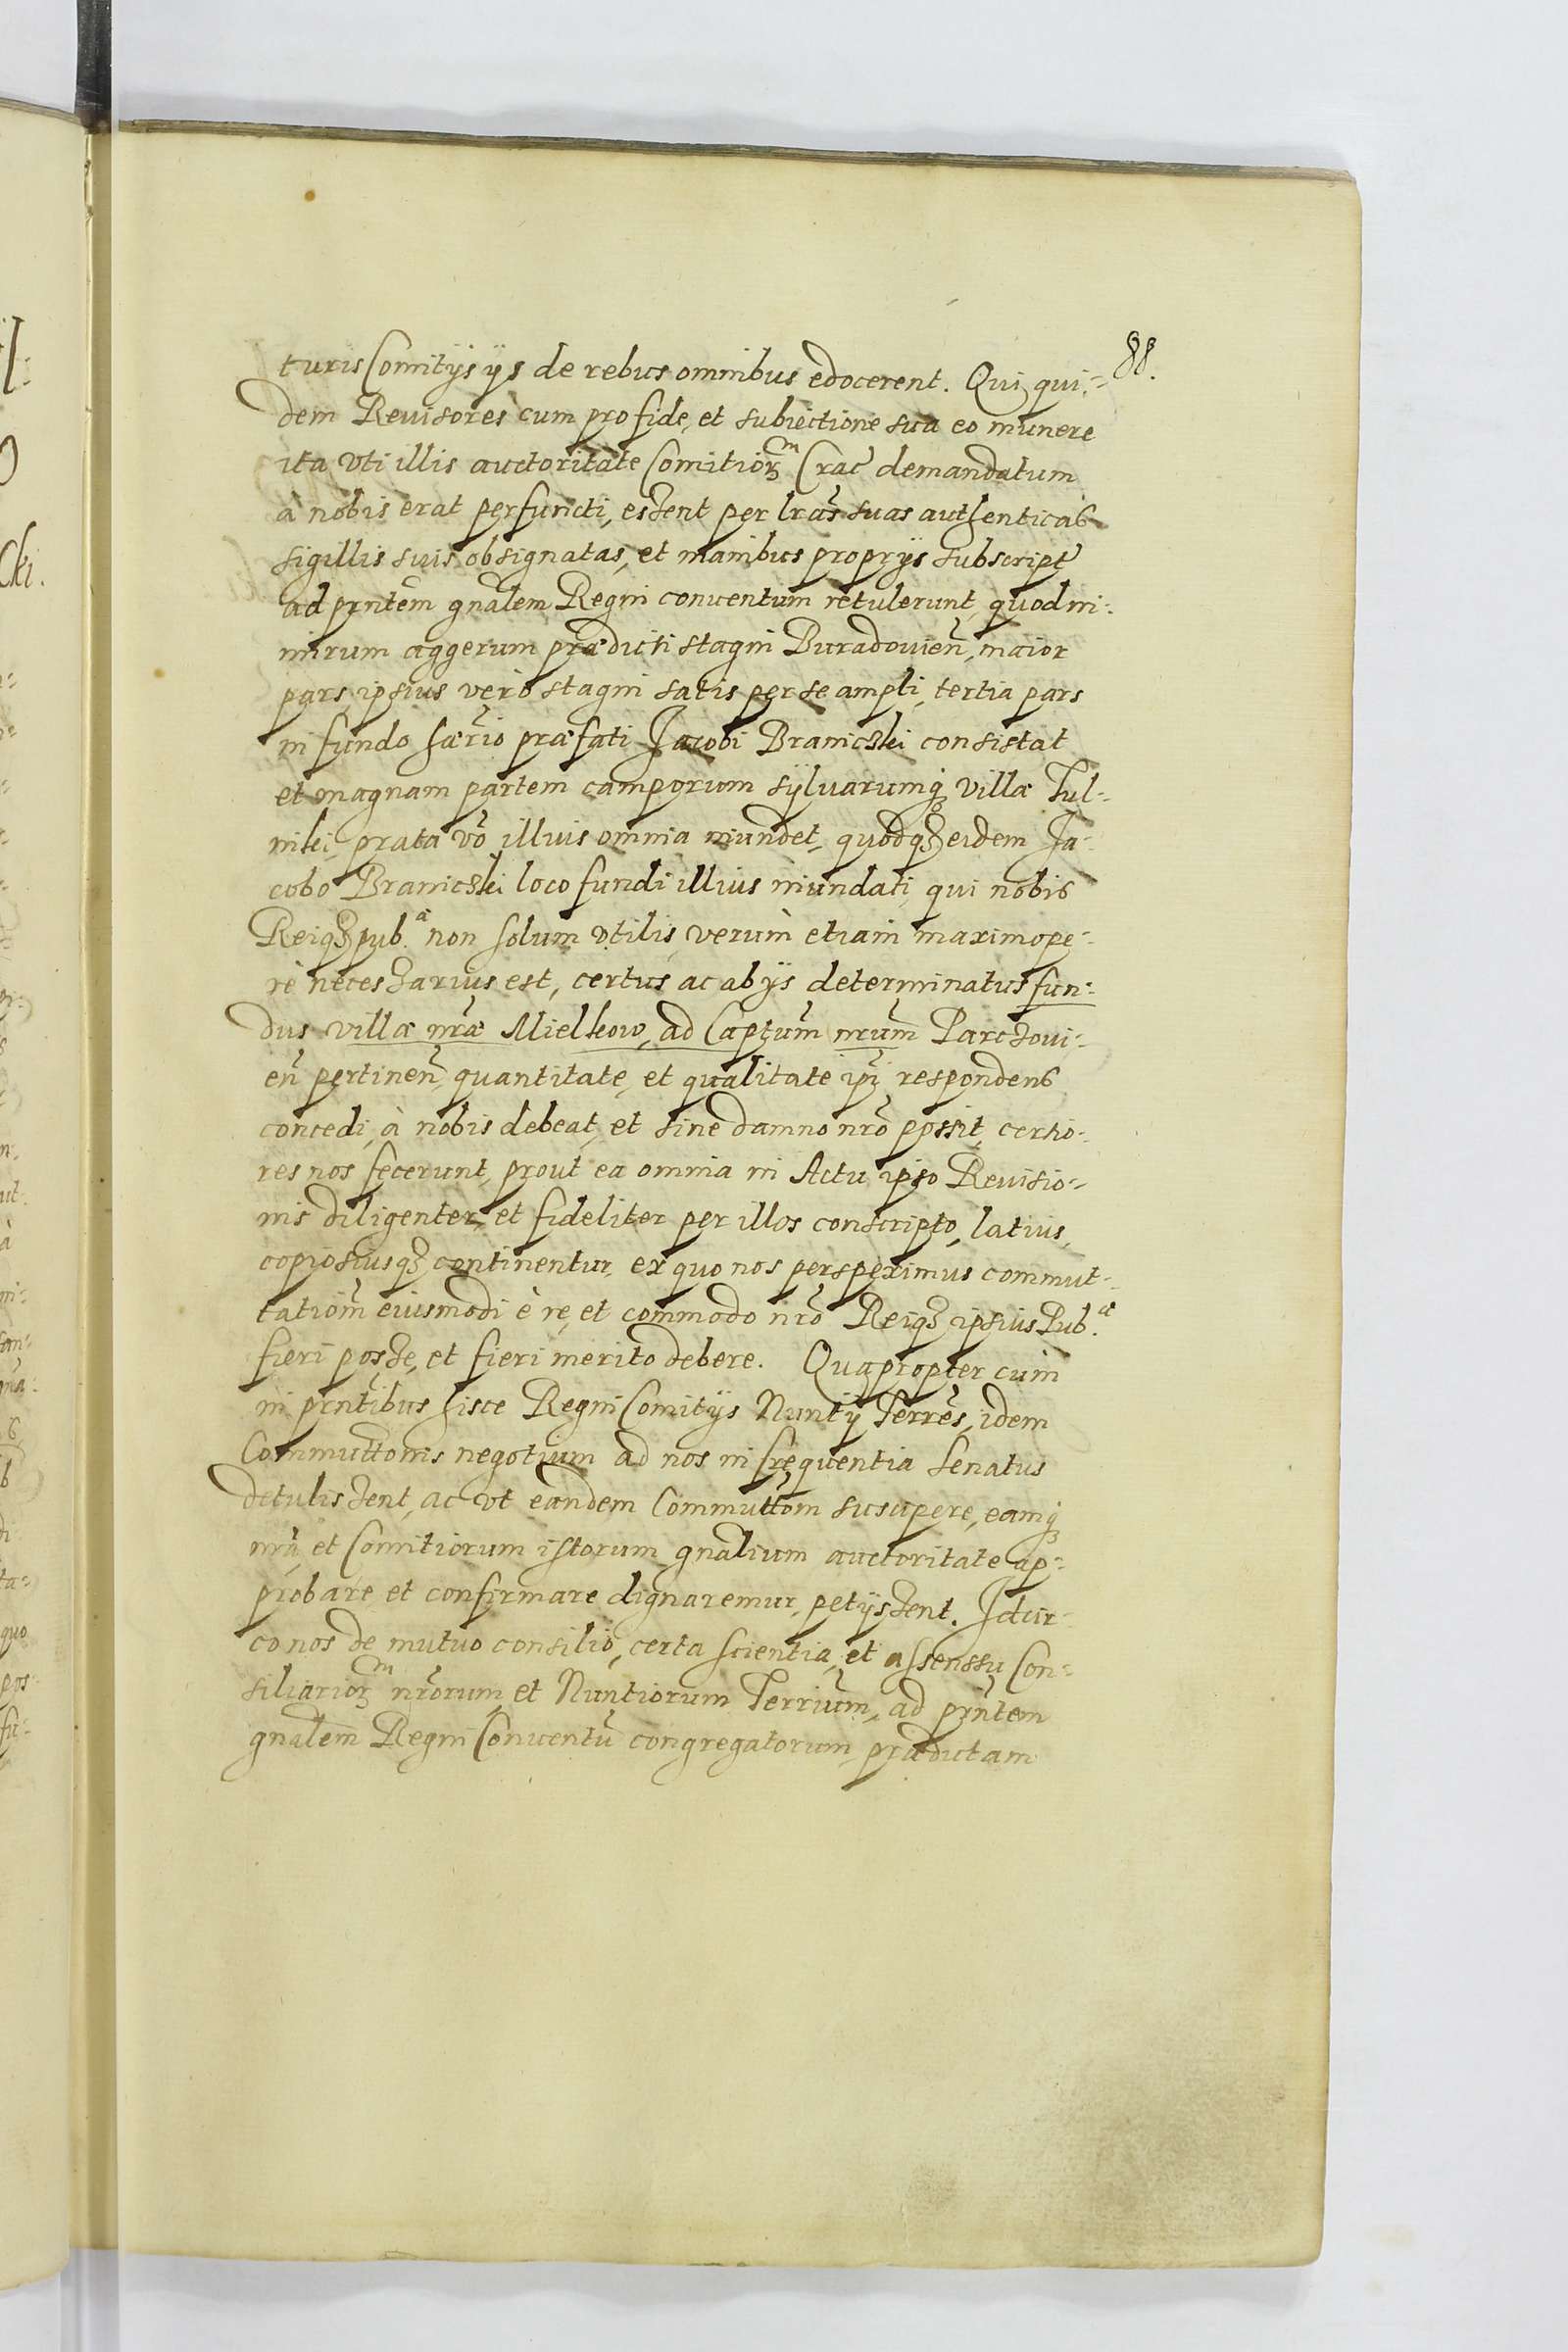 88.
turis Comitijs ijs de rebus omnibus edocerent. Qui qui:=
dem Reuisores cum pro fide, et subiectione sua eo munere
ita vti illis auctoritate Comitioꝝᵐ Crac̃ demandatum
à nobis erat perfuncti, essent per lrãs suas authenticas
sigillis suis obsignatas, et manibus proprijs subscript̃
ad prñtem gñalem Regni conuentum retulerunt, quod ni:
mirum aggerum prædicti stagni Buradouien̄, maior
pars, ipsius verò stagni satis per se ampli, tertia pars
in fundo hærio præfati Jacobi Branicski consistat
et magnam partem camporum syluarumq̃ villæ Tul=
niki, prata vō illius omnia inundet, quodqȝ eidem Ja=
cobo Branicski loco fundi illius inundati, qui nobis
Reiqȝ pub.ᵃ non solum vtilis, verum etiam maximope=
rè necessarius est, certus ac ab ijs determinatus fun=
dus villæ nrãe Mielkow, ad Capt̄um nrũm Parczoui=
en̄ pertinen̄, quantitate, et qualitate ip̄i respondens
concedi, à nobis debeat, et sine damno nrõ possit, certio=
res nos fecerunt, prout ea omnia in Actu ipso Reuisio=
nis diligenter, et fideliter per illos conscripto, latius,
copiosiusqȝ continentur, ex quo nos perspeximus commut=
tatiom̄ eiusmodi è re, et commodo nrõ Reiqȝ ipsius Pub.ᵃ
fieri posse, et fieri merito debere. Quapropter cum
in prñtibus hisce Regni Comitijs Nuntij Terrēs, idem
Commutt̄onis negotium ad nos in frequentia Senatus
detulissent, ac vt eandem Commutt̄om suscipere, eamq̃
nrã et Comitiorum istorum gñalium auctoritate ap=
probare et confirmare dignaremur, petijssent. Idcir=
co nos de mutuo consilio, certa scientia, et assenssu Con=
siliarioꝝᵐ nrõrum, et Nuntiorum Terrium̄, ad prñtem
gñalem Regni Conuentū congregatorum, prædictam